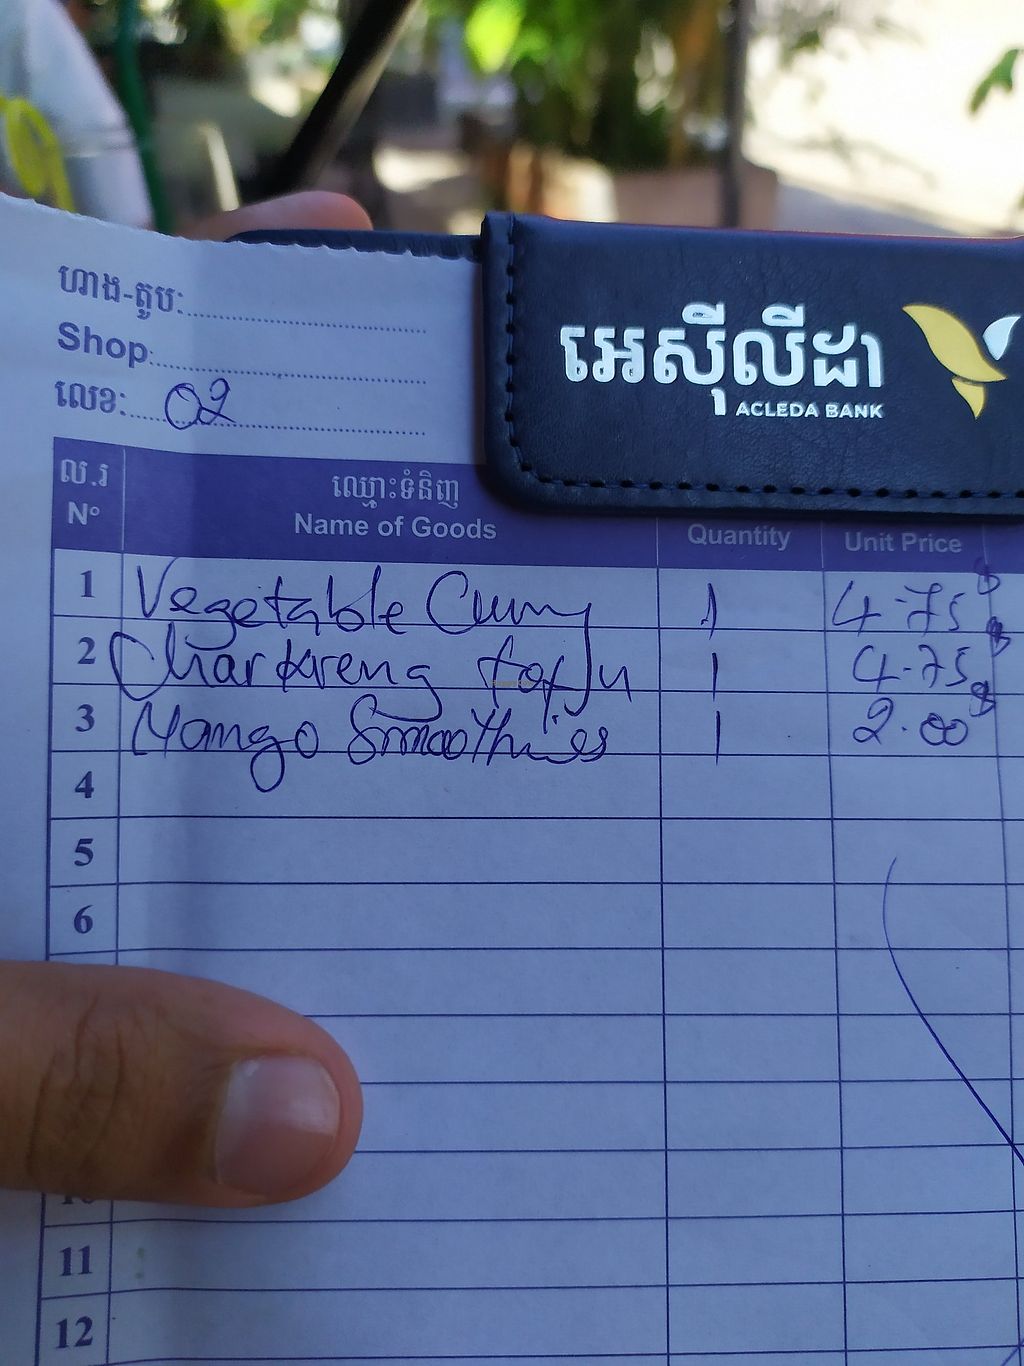 ហាង-តូប:
Shop:
លេខ: 02
អេស៊ីលីដា
ACLEDA BANK
ល.រ ឈ្មោះទំនិញ
Nº Name of Goods Quantity Unit Price
1 Vegetable Curry 1 4.75$
2 Charkreng tofu 1 4.75$
3 Mango Smoothies 1 2.00$
4
5
6
10
11
12